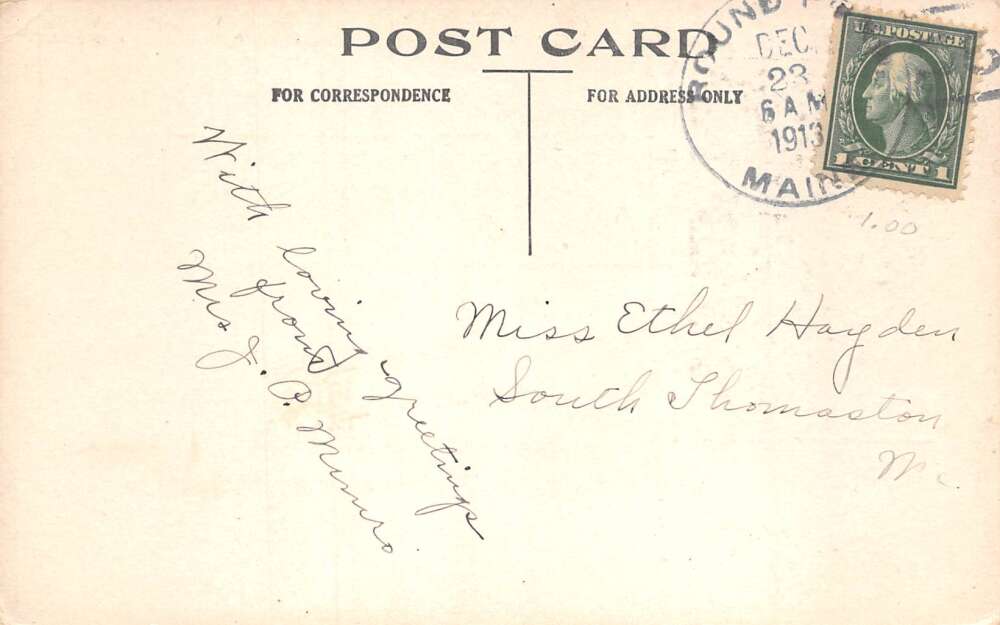 POST CARD
FOR CORRESPONDENCE
FOR ADDRESS ONLY
ROUND
DEC
23
6 AM
1913
MAINE
U.S. POSTAGE
1 CENT 1
1.00
With loving greetings
from
Mrs J. P. Munro
Miss Ethel Hayden
South Thomaston
Me